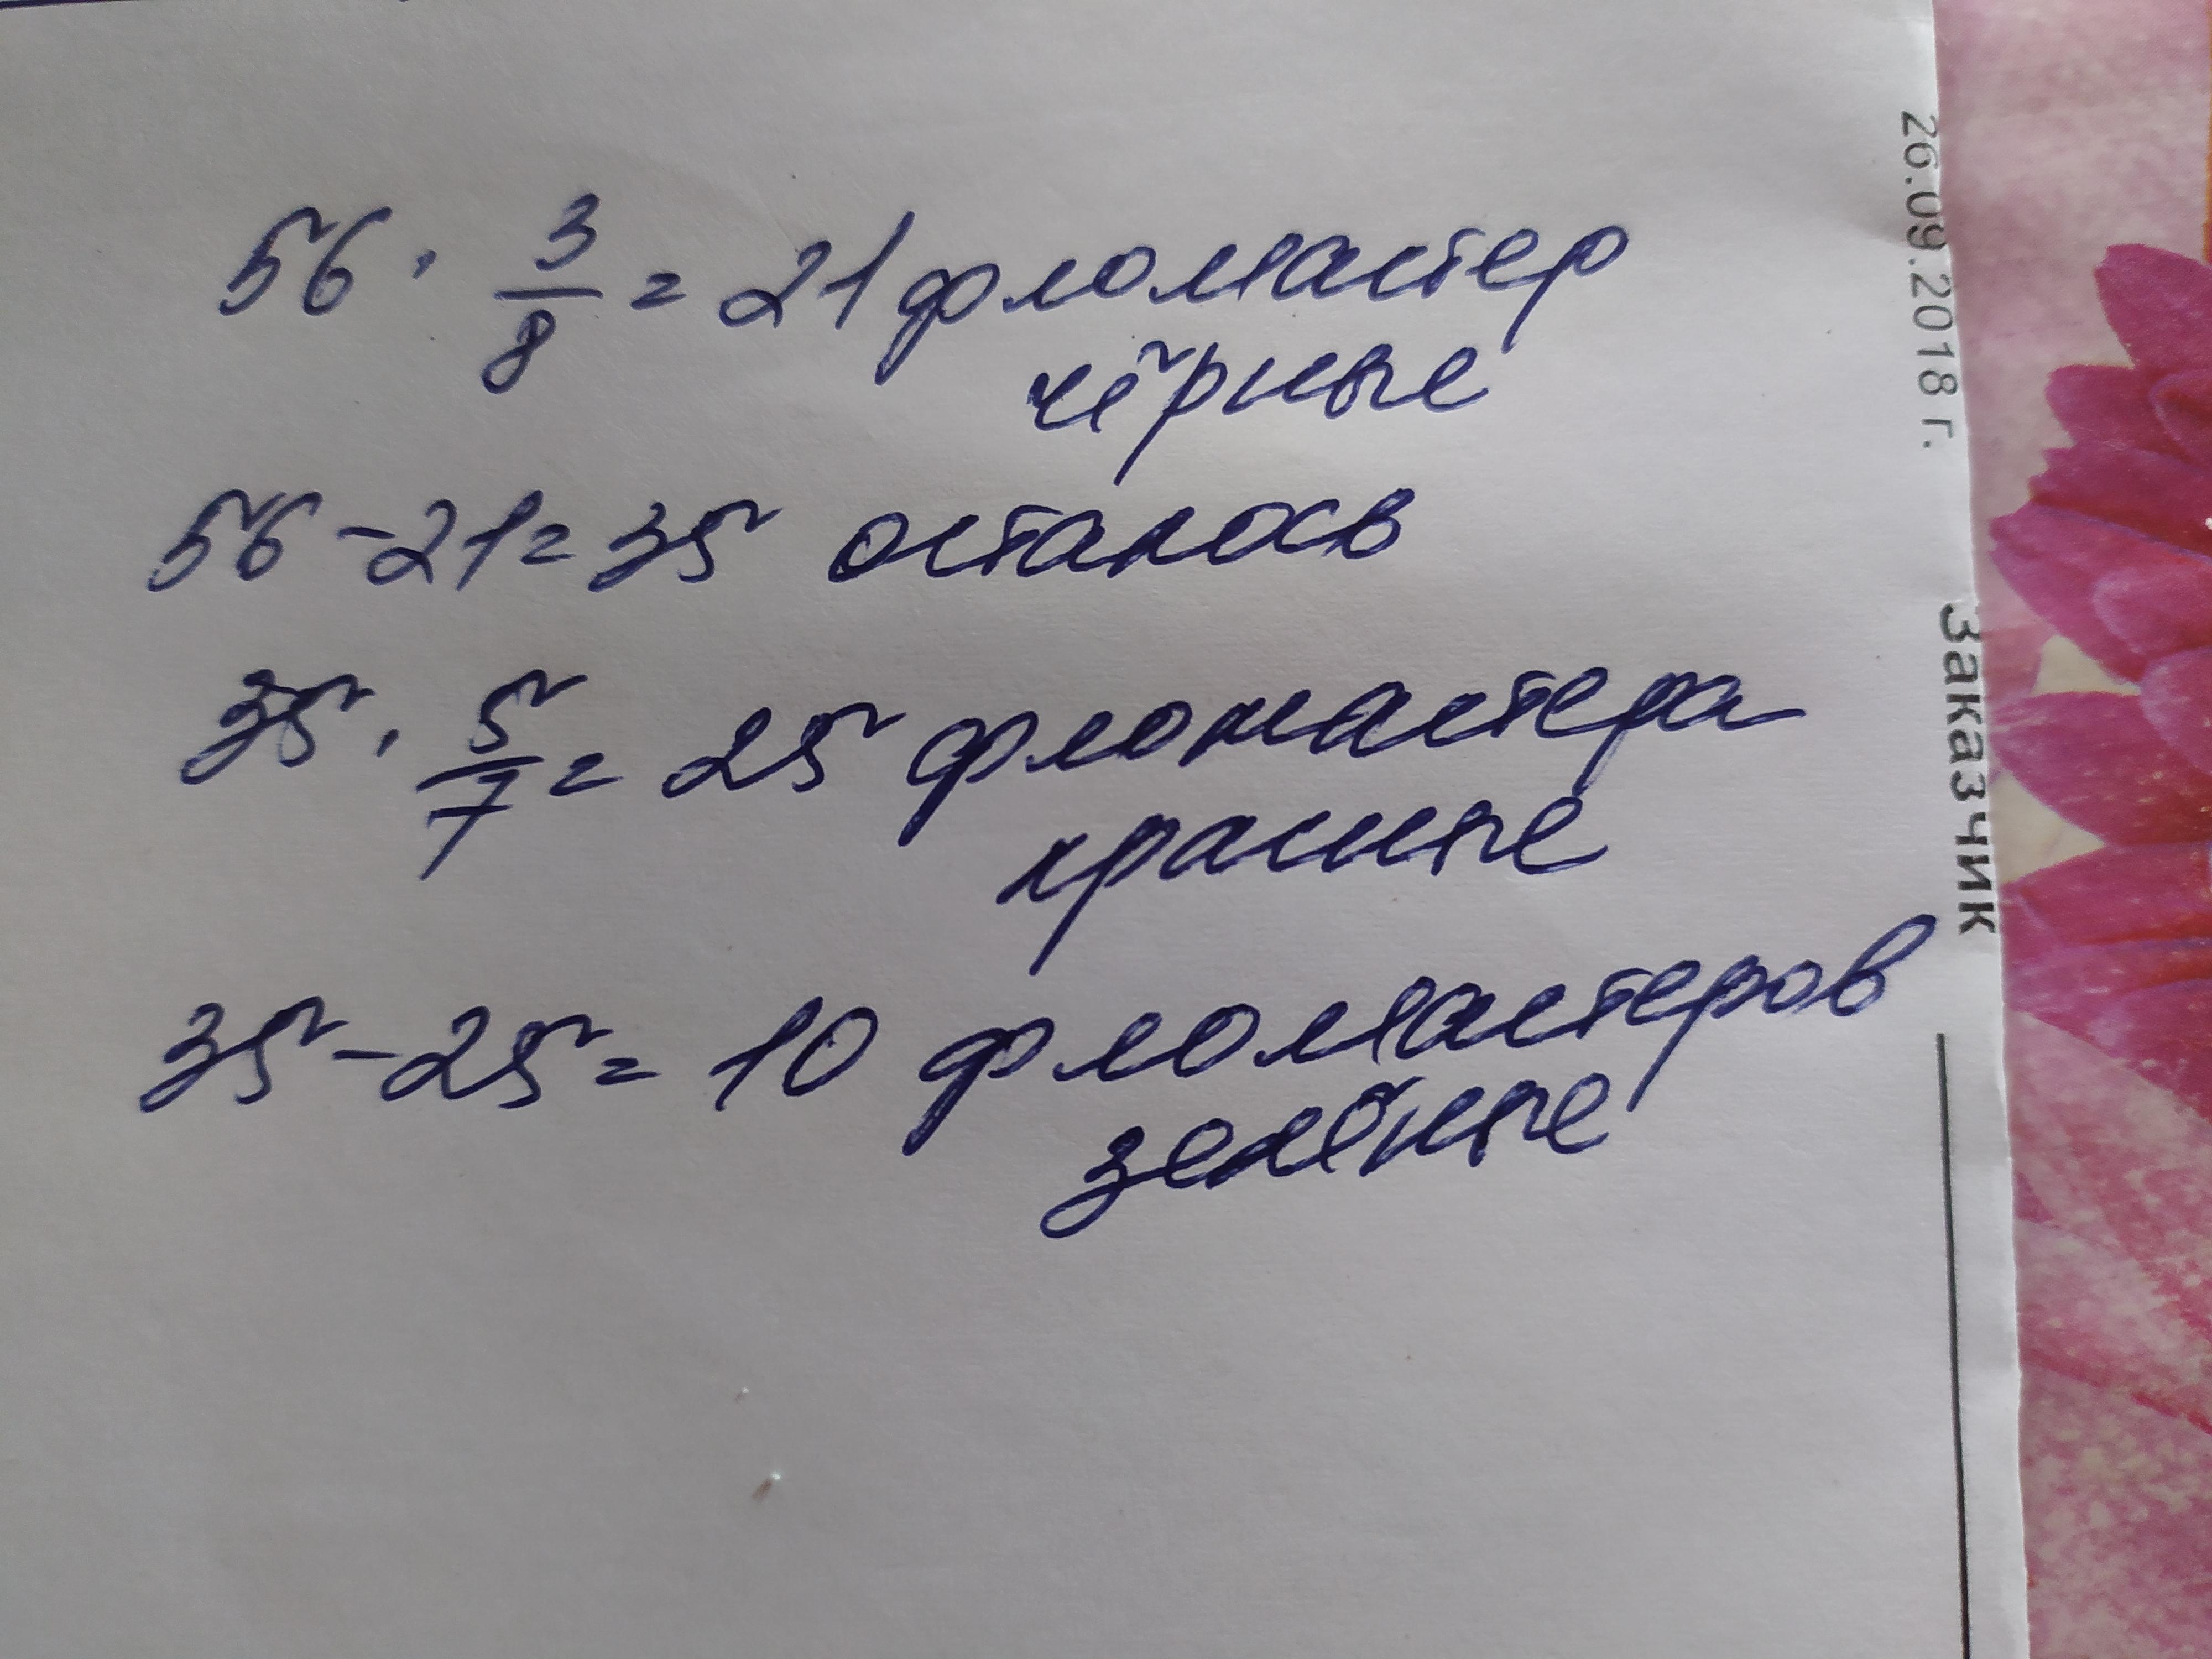 56 · 3/8 = 21 фломастер
чёрные
56 - 21 = 35 осталось
35 · 5/7 = 25 фломастера
красные
35 - 25 = 10 фломастеров
зелёные
26.09.2018 г.
Заказчик